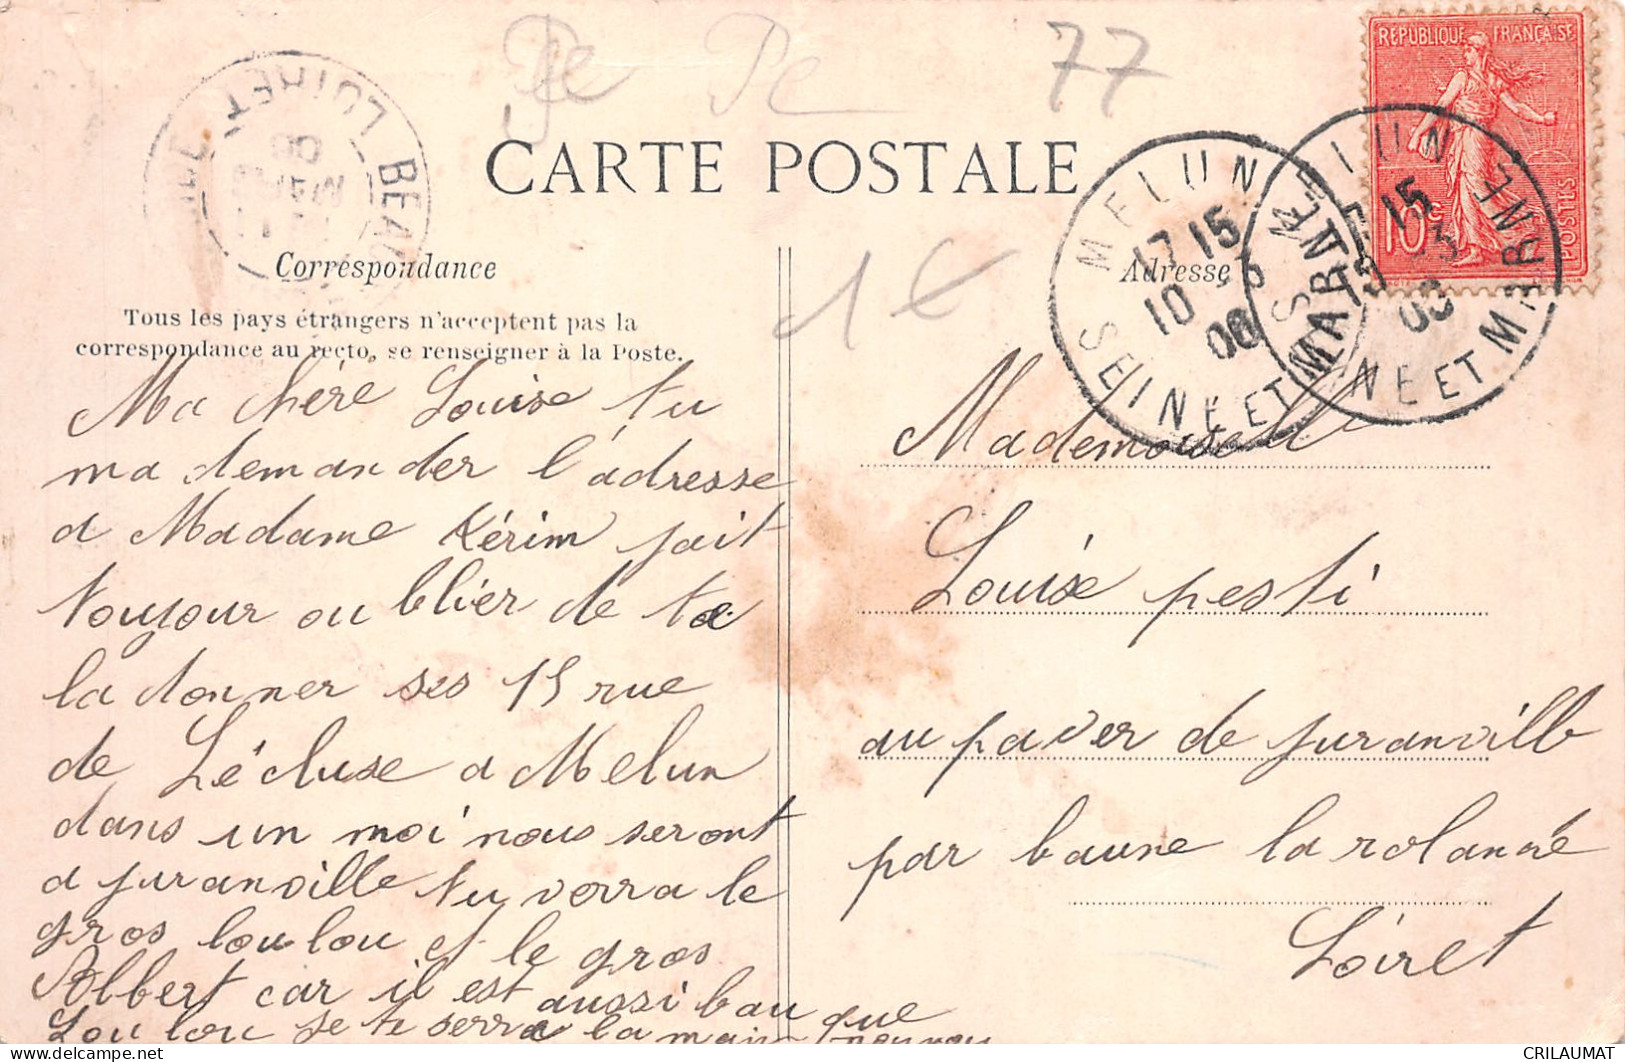 Pc Pc 77
RÉPUBLIQUE FRANÇAISE
10c
POSTES
BEAU LOIRET
CARTE POSTALE
MELUN
17 15
10
06
SEINE ET MARNE
MELUN
15
SEINE ET MARNE
Correspondance
Adresse
1€
Tous les pays étrangers n'acceptent pas la
correspondance au recto, se renseigner à la Poste.
Ma chére Louise tu
ma demander l'adresse
a Madame Kérim sait
toujour ou blier de te
la donner ses 15 rue
de Lécluse a Melun
dans un moi nous seront
a juranville tu verra le
gros lou lou et le gros
Albert car il est aussi bau que
Lou lou je te serre la main
Mademoiselle
Louise pesti
au paver de juranville
par baune la rolanne
Loiret
CRILAUMAT